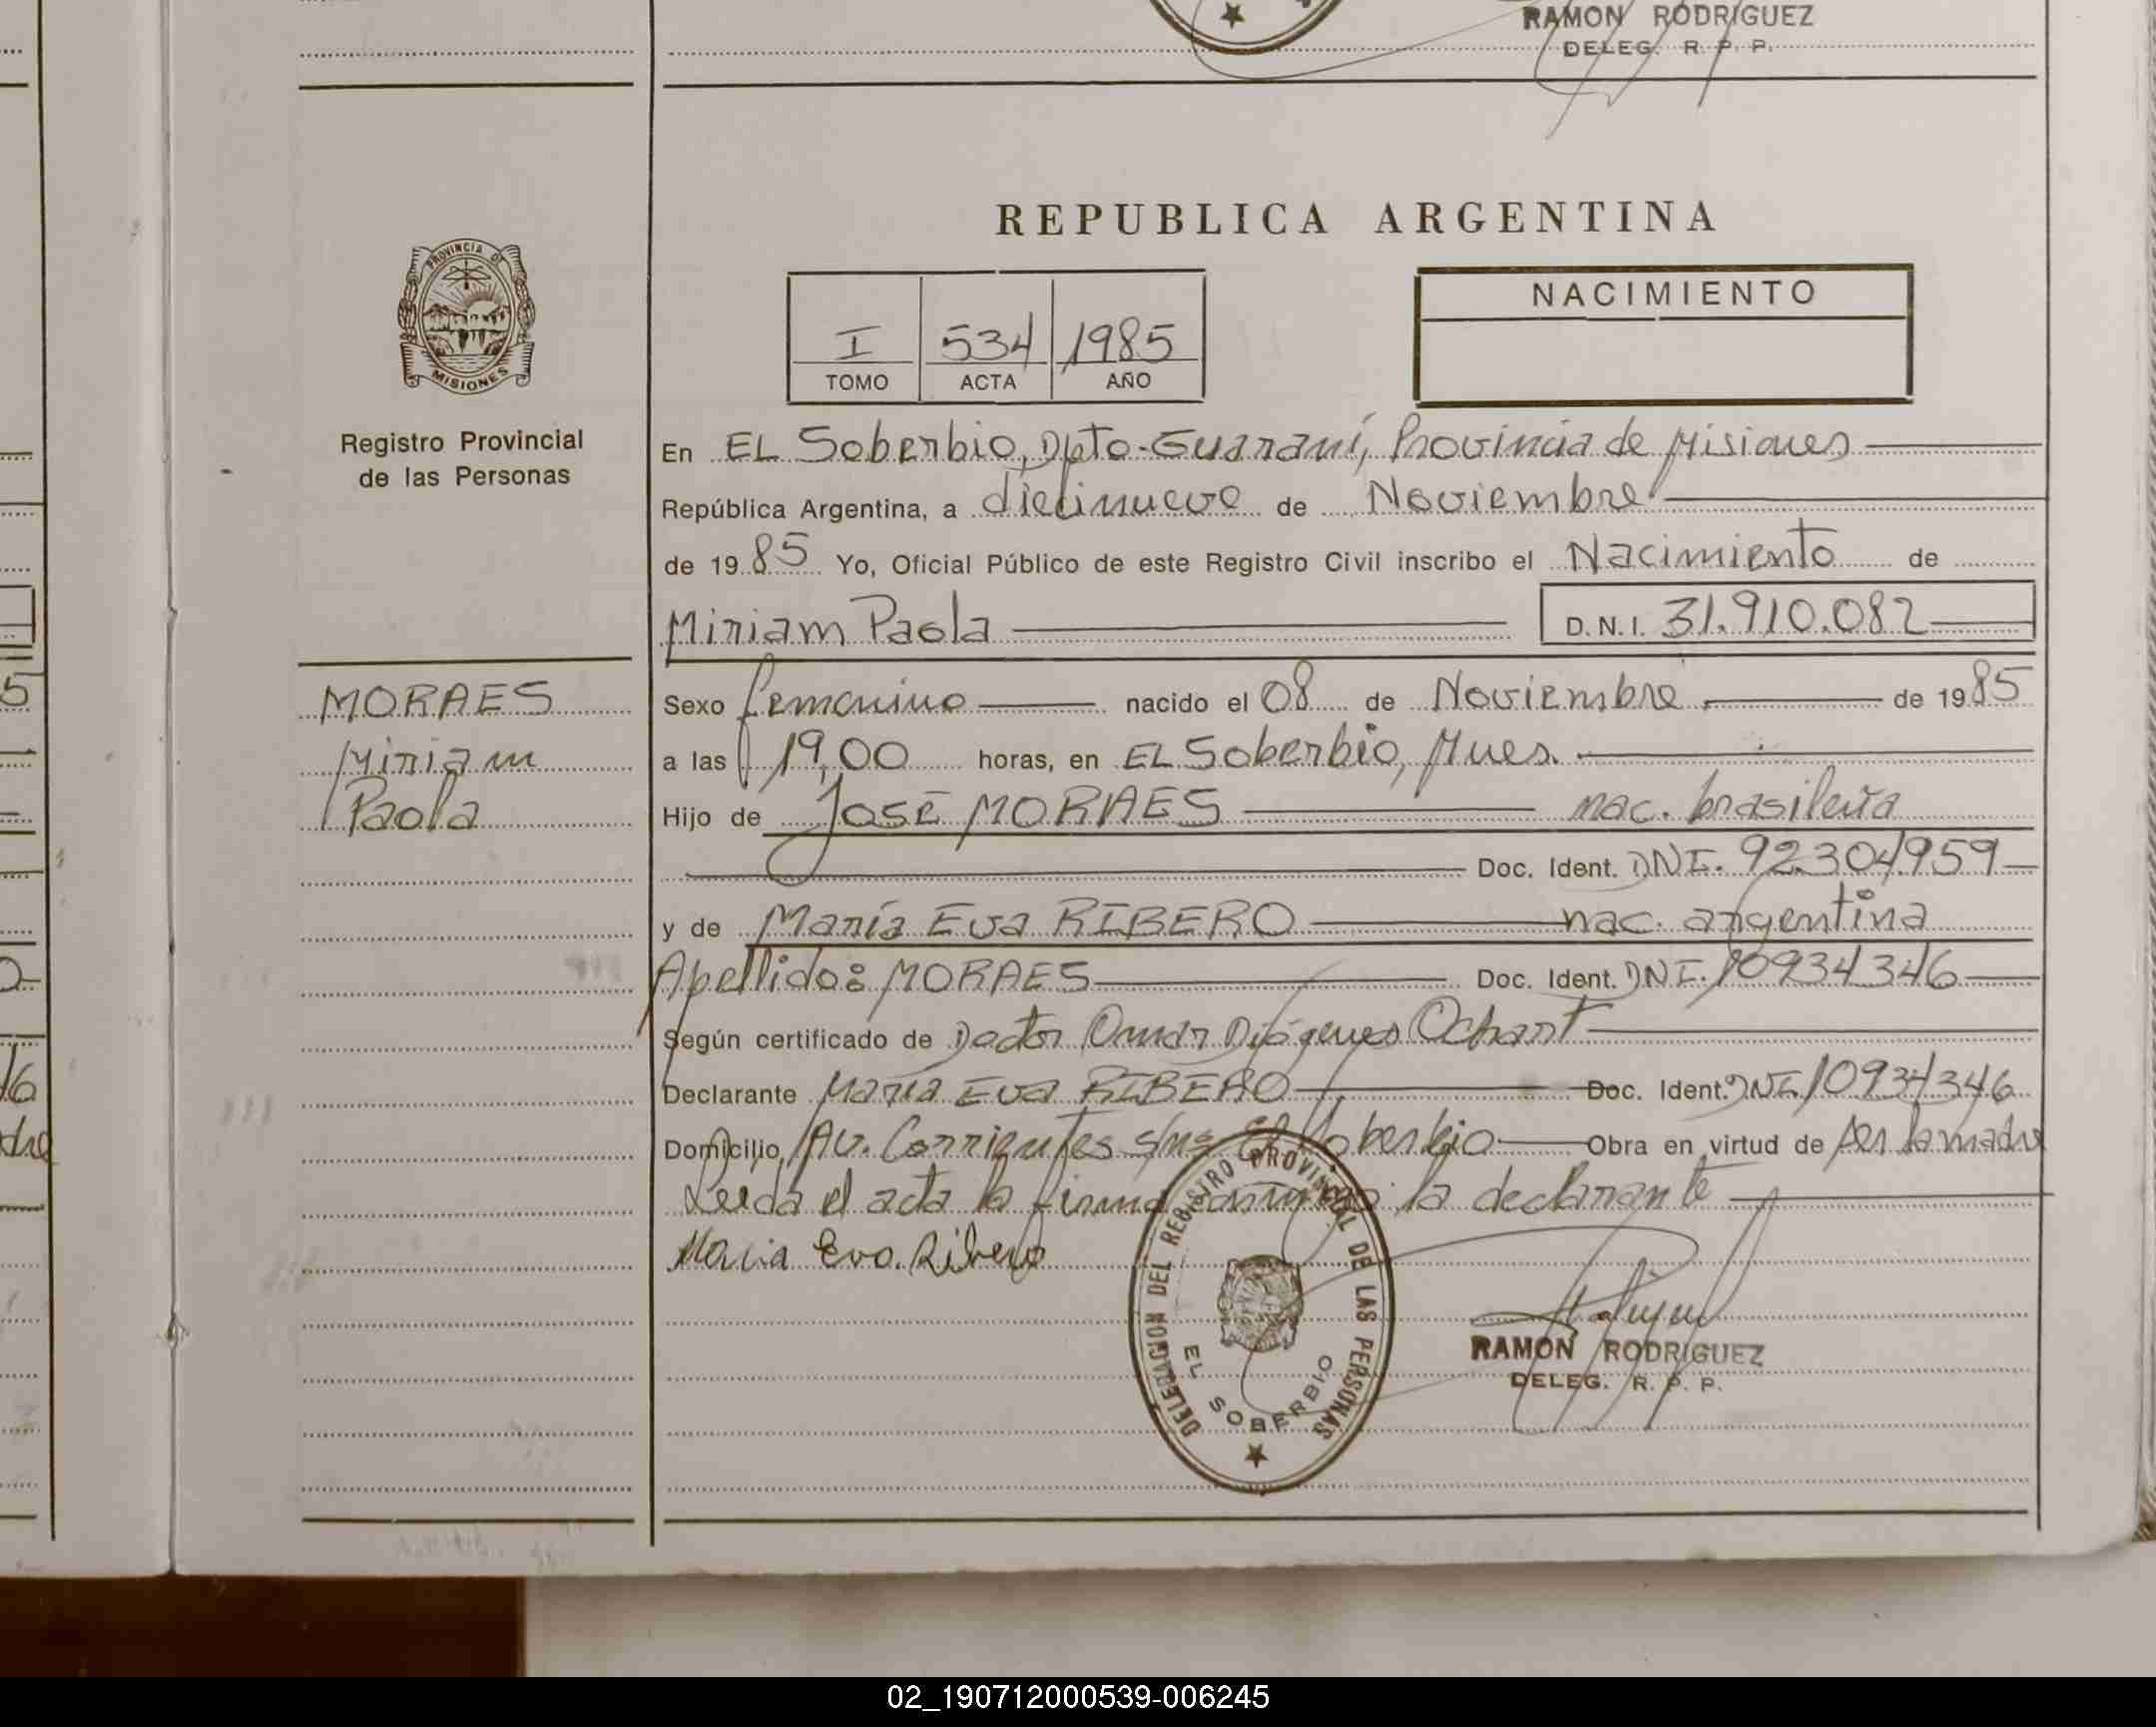 RAMON RODRIGUEZ
DELEG. R. P. P.
REPUBLICA ARGENTINA
PROVINCIA DE
MISIONES
Registro Provincial
de las Personas
I 534 1985
TOMO ACTA AÑO
NACIMIENTO
En EL Soberbio, Dpto-Guaraní, Provincia de Misiones
República Argentina, a diecinueve de Noviembre
de 1985 Yo, Oficial Público de este Registro Civil inscribo el Nacimiento de
Miriam Paola D.N.I. 31.910.082
MORAES
Miriam
Paola
Sexo femenino nacido el 08 de Noviembre de 1985
a las 19,00 horas, en EL Soberbio, Mnes.
Hijo de José MORAES nac. brasileña
Doc. Ident. DNI. 92.304959
y de María Eva RIBERO nac. argentina
Apellido: MORAES Doc. Ident. DNI. 10934346
Según certificado de Doctor Omar Diógenes
Declarante María Eva RIBERO Doc. Ident. DNI 10934346
Domicilio Av. Corrientes s/nº El Soberbio Obra en virtud de ser la madre
Leida el acta la firma conmigo la declarante
Maria Eva Ribero
DELEGACION DEL REGISTRO PROVINCIAL DE LAS PERSONAS
EL SOBERBIO
RAMON RODRIGUEZ
DELEG. R. P. P.
02_190712000539-006245